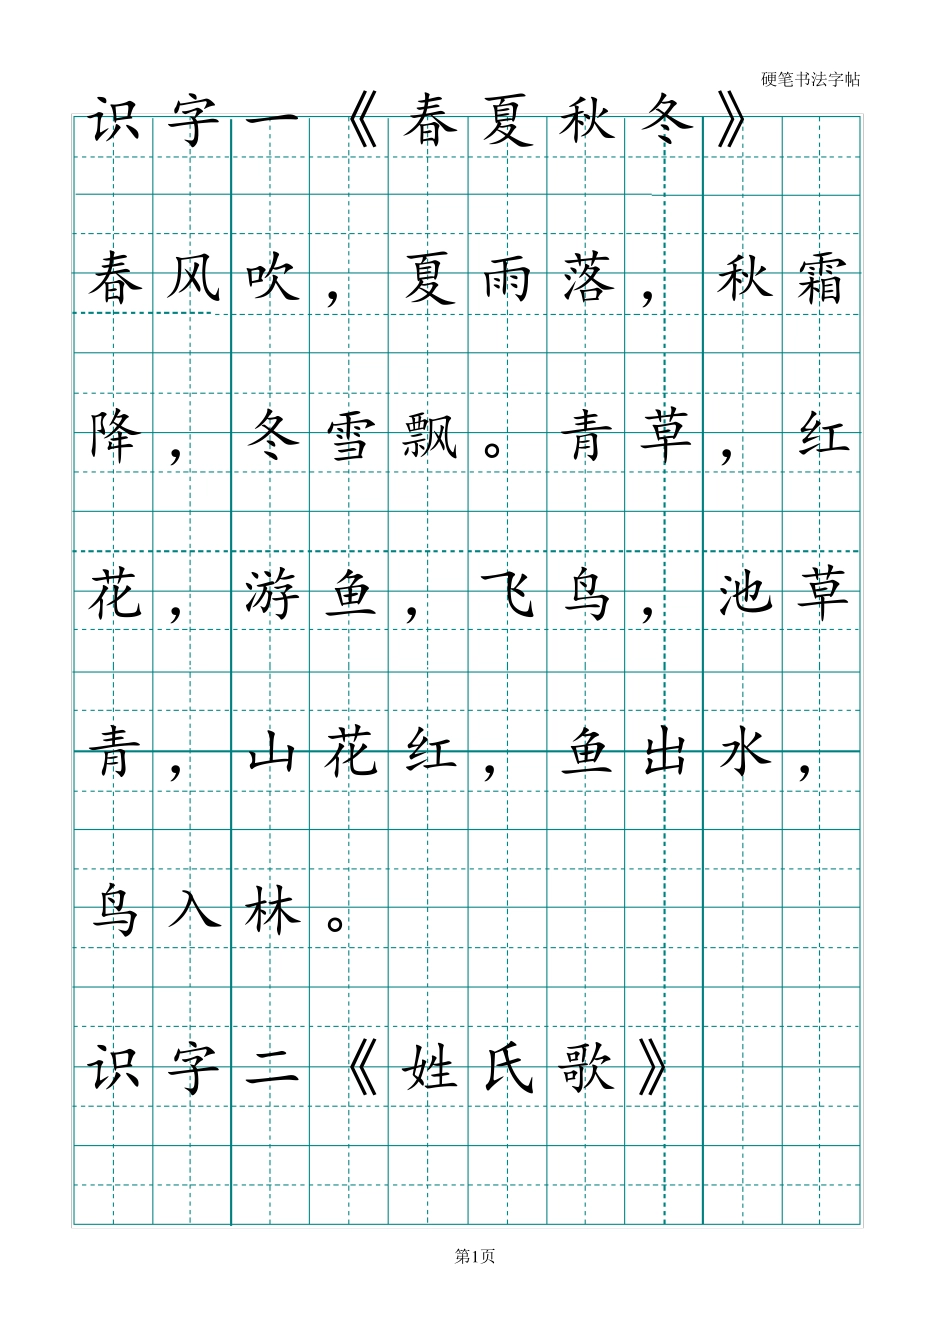 硬笔书法字帖
识字一《春夏秋冬》
春风吹，夏雨落，秋霜
降，冬雪飘。青草，红
花，游鱼，飞鸟，池草
青，山花红，鱼出水，
鸟入林。
识字二《姓氏歌》
第1页